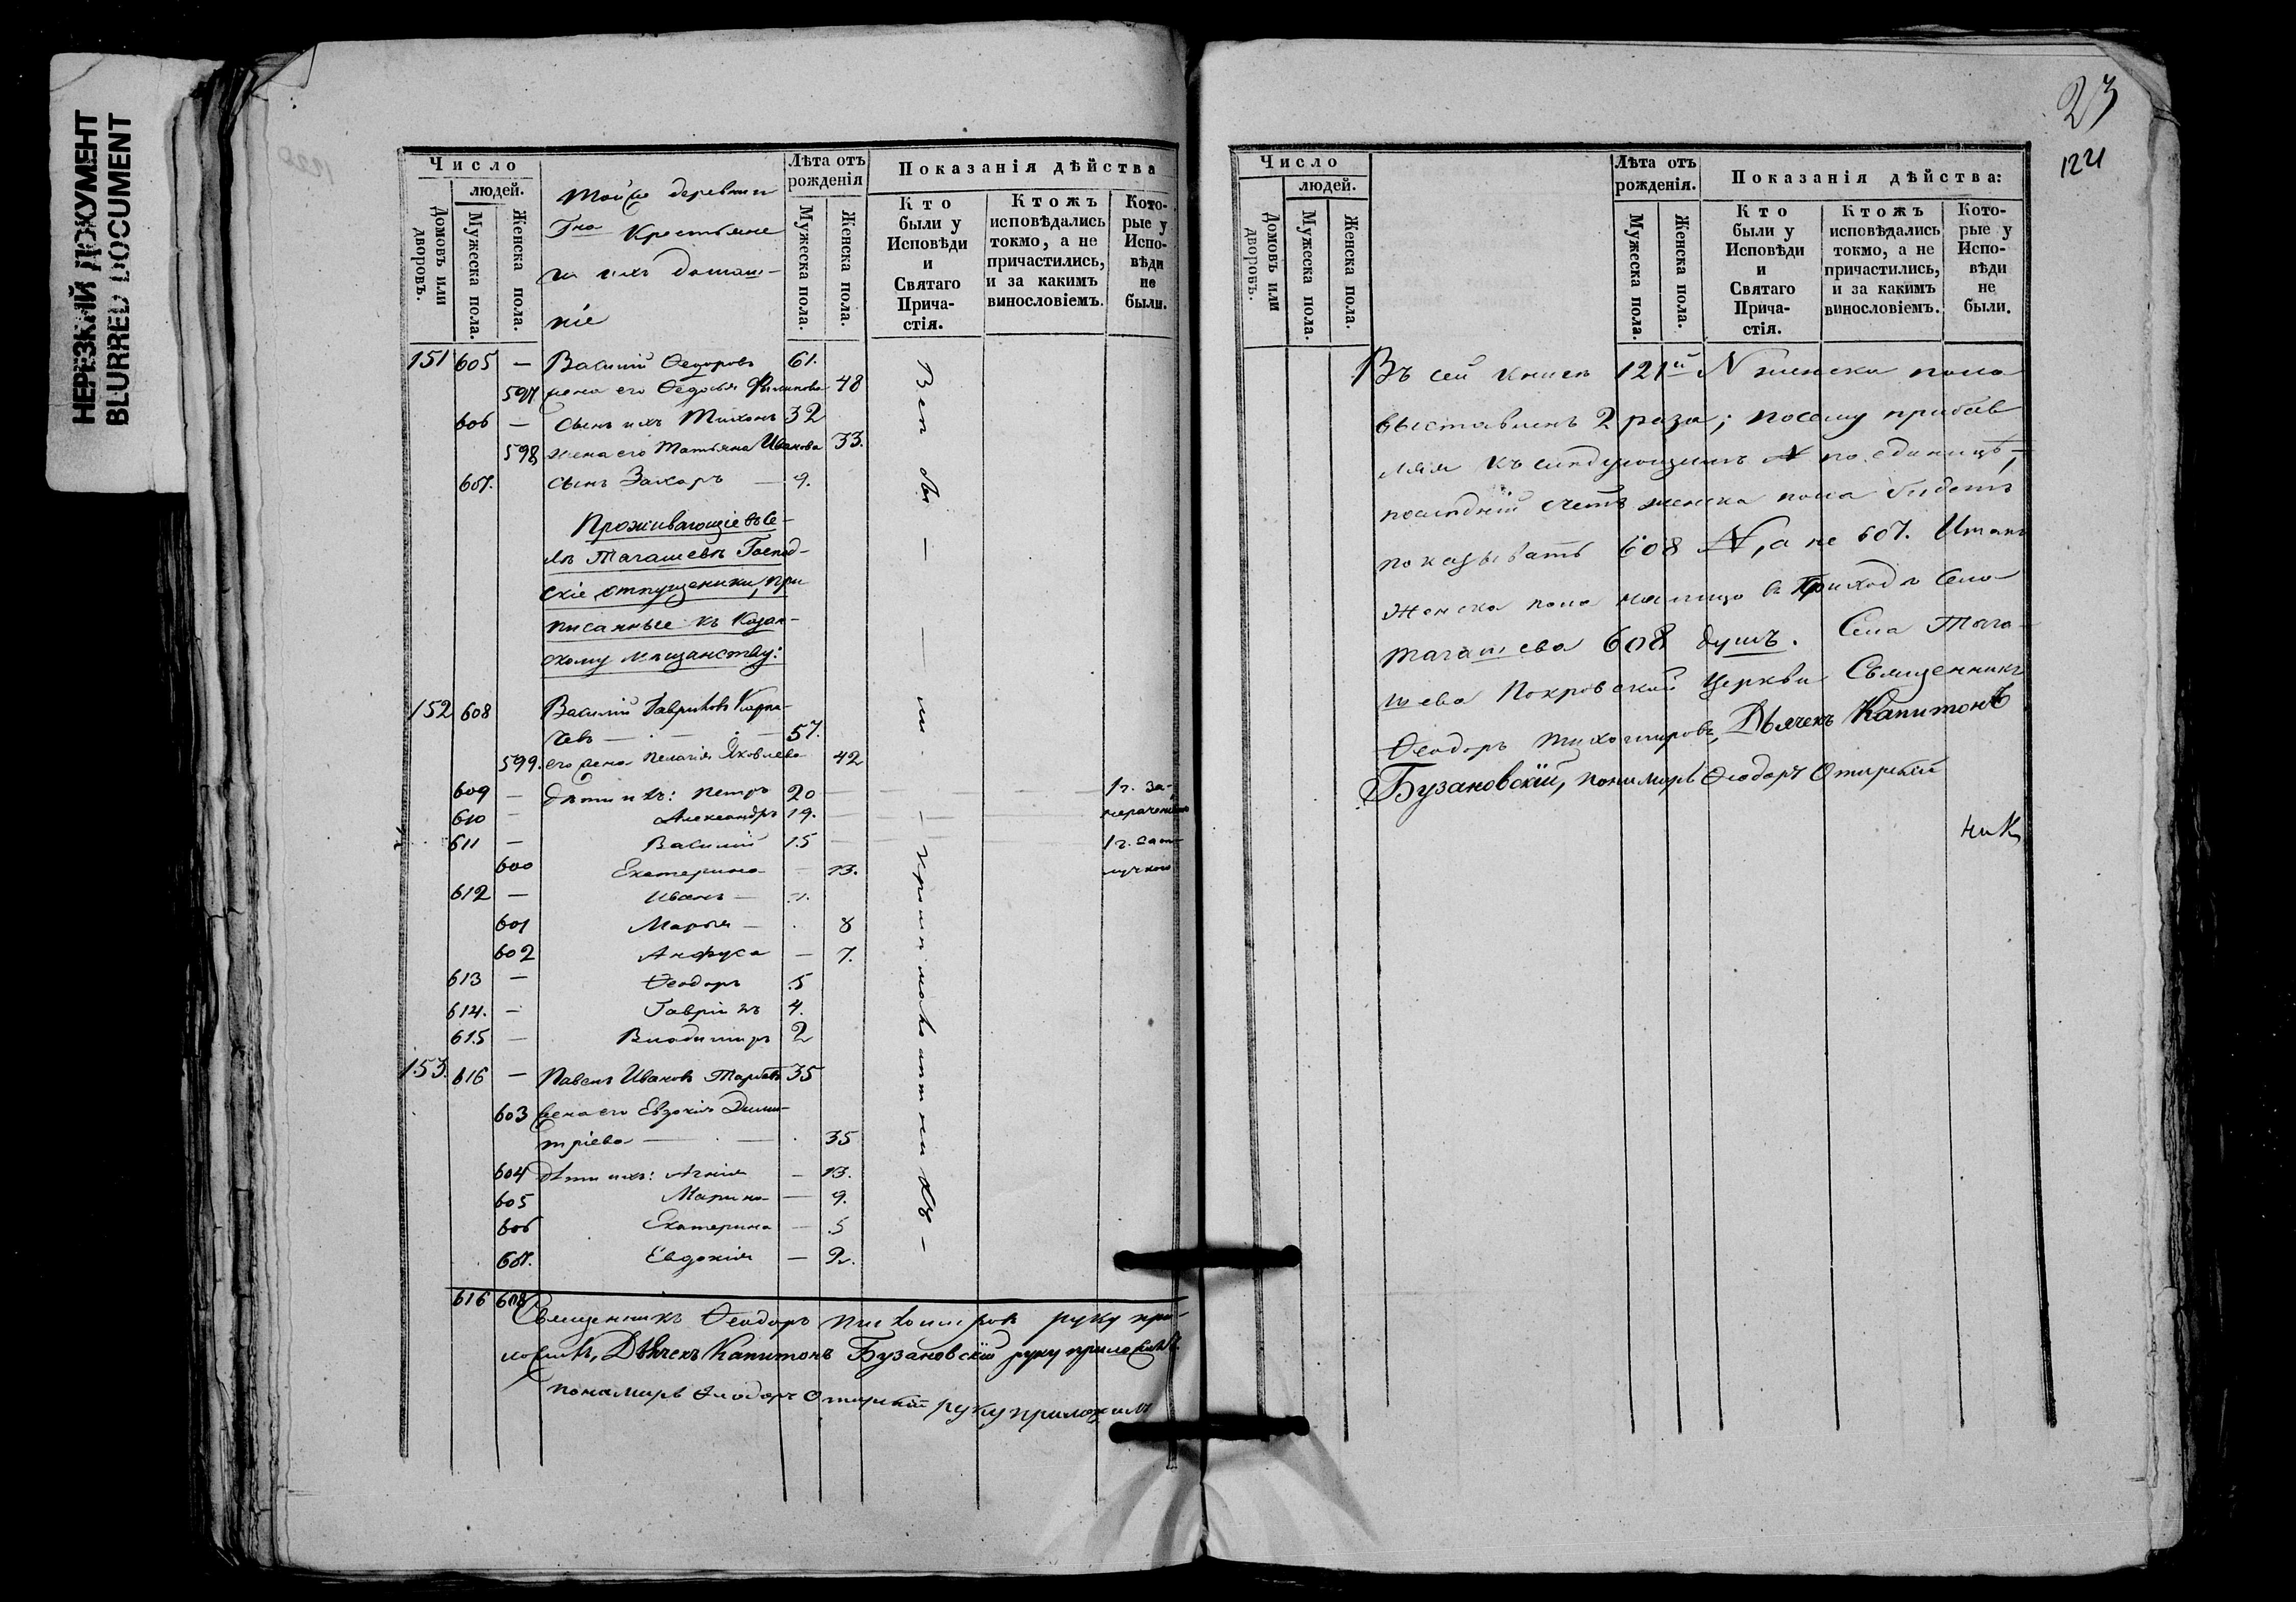 НЕРЕЗКИЙ ДОКУМЕНТ
BLURRED DOCUMENT
Число
людей.
Домовъ или дворовъ.
Мужеска пола.
Женска пола.
Тойже деревни
Гна Крестьяне
и ихъ домаш-
ніе
Лѣта отъ рожденія
Мужеска пола.
Женска пола.
Показанія дѣйства
Кто были у Исповѣди и Святаго Прича-стія.
Ктожъ исповѣдались токмо, а не причастились, и за какимъ винословіемъ.
Кото-рые у Испо-вѣди не были.
151 605 — Василій Ѳедоровъ 61.
597 жена его Ѳедосья Филипова 48
606 — Сынъ ихъ Тихонъ 32
598 жена его Татьяна Иванова 33.
607. Сынъ Захаръ — 9.
Проживающіе въ се-
лѣ Тагашевѣ Господ-
скіе отпущенники, при
писанные къ Казан-
скому мѣщанству:
152 608 Василій Гавриловъ
57.
599. его жена Пелагія Яковлева 42
609 — дѣти ихъ: Петръ 20 1 г. за
610 — Александръ 19.
611 — Василій 15 1 г. за от-
600 Екатерина — 13. лучкою
612 — Иванъ —
601 Марья — 8
602 Анфуса — 7.
613 — Ѳеодоръ 5
614. — Гавріилъ 4.
615 — Владимиръ 2
153. 616 — Павелъ Ивановъ 35
603 жена его Евдокія Дими-
тріева — 35
604 дѣти ихъ: Агнія — 13.
605 Марина — 9.
606 Екатерина — 5
607. Евдокія — 2.
616 608
Священникъ Ѳеодоръ Тихомировъ руку при-
ложилъ, Дьячекъ Капитонъ Бузановскій руку приложилъ.
пономарь Ѳеодоръ руку приложилъ
23
1221
Число
людей.
Домовъ или дворовъ.
Мужеска пола
Женска пола.
Лѣта отъ рожденія.
Мужеска пола.
Женска пола.
Показанія дѣйства:
Кто были у Исповѣди и Святаго Прича-стія.
Ктожъ исповѣдались токмо, а не причастились, и за какимъ винословіемъ.
Кото-рые у Испо-вѣди не были.
Въ сей книгѣ 121й N женска пола
выставленъ 2 раза; посему прибав
ляя къ слѣдующимъ N по единицѣ,
послѣдній счетъ женска пола будетъ
показывать 608 N, а не 607. Итакъ
Женска пола на лицо въ приходѣ Села
Тагашева 608 душъ. Села Тага-
шева Покровской Церкви Священникъ
Ѳеодоръ Тихомировъ, Дьячекъ Капитонъ
Бузановскій, пономарь Ѳеодоръ